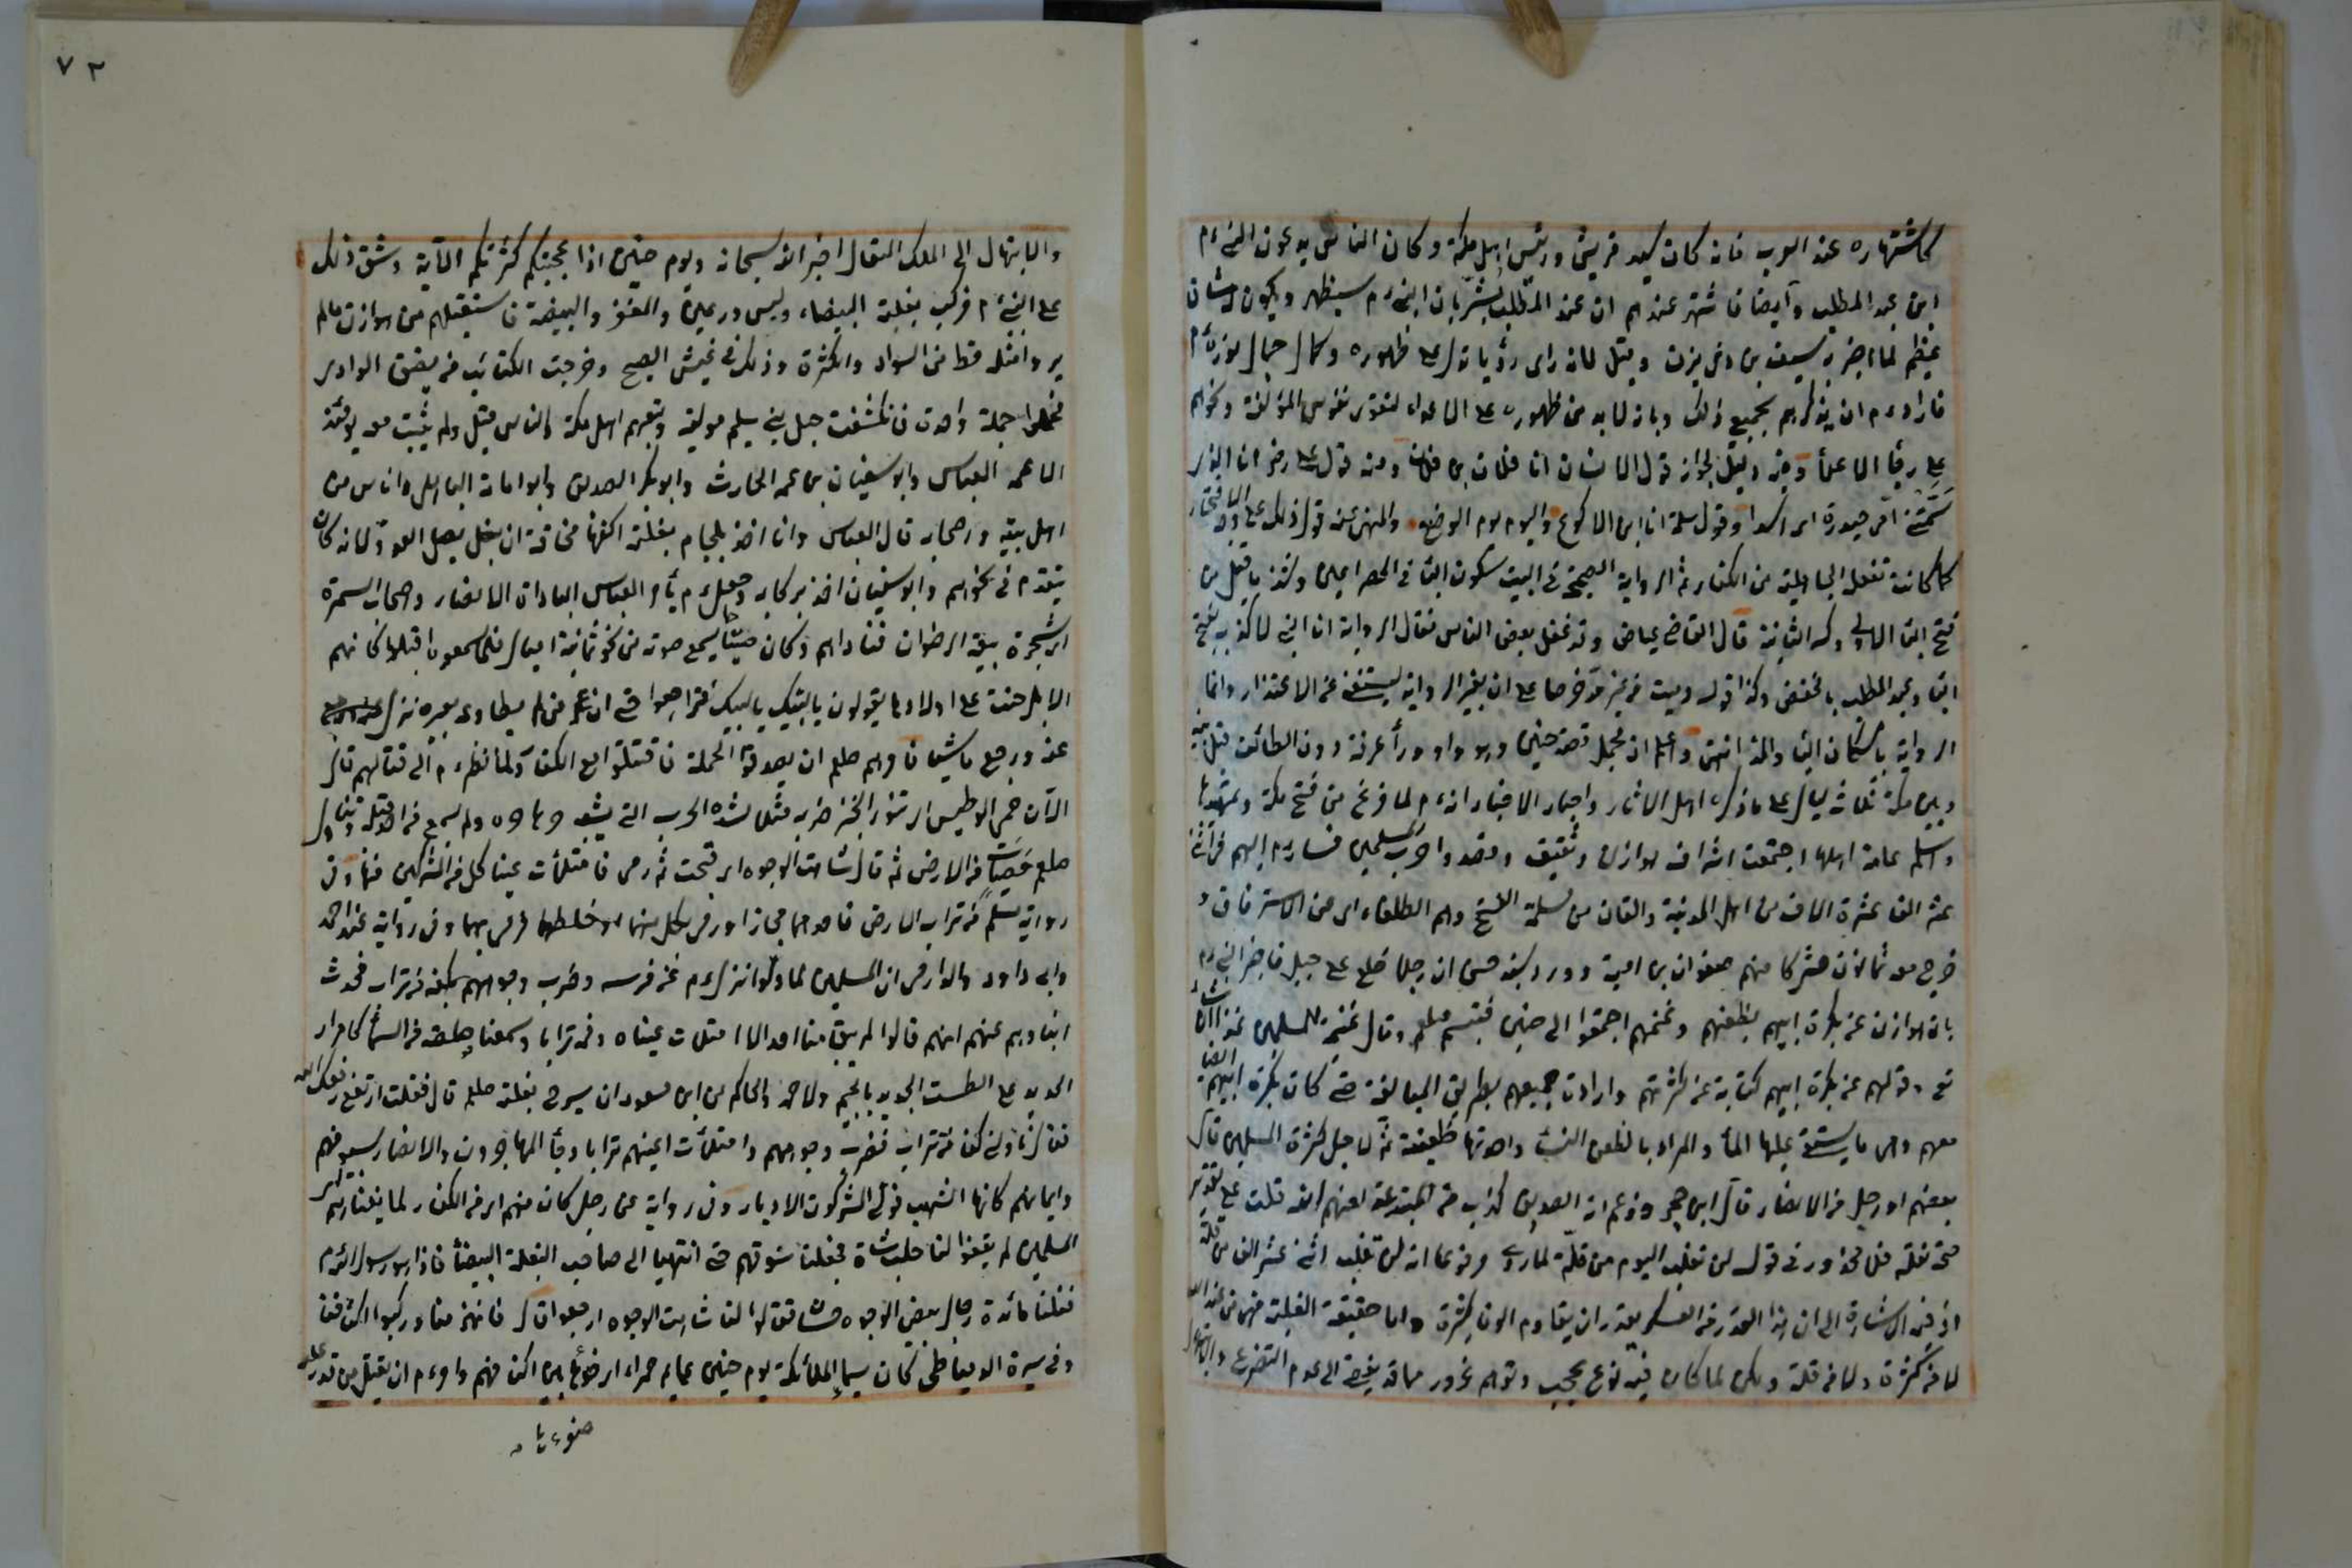 كاشتهاره عند العرب فانه كان سيد قريش ورئيس اهل مكة وكان الناس يدعون النبي م
ابن عبد المطلب وأيضا فاشتهر عندهم ان عبد المطلب بشر بان النبي م سيظهر ويكون له شان
عظيم لما اخبره سيف بن ذي يزن وقيل لانه راى رؤيا تدل على ظهوره وكمال جمال نوره م
فاراد م ان يذكرهم بجميع ذلك وبانه لابد من ظهوره على الاعداء لتقوى نفوس المؤلفة ونحوهم
على رقاب الاعداء وفيه دليل لجواز قول الانسان انا فلان بن فلان ومنه قول علي رض انا الذي
سمتني امي حيدرة اى اسدا وقول سلمة انا ابن الاكوع واليوم يوم الرضع والمنهي عنه قول ذلك على وجه الافتخار
كما كانت تفعله الجاهلية من الكفار ثم الرواية الصحيحة في البيت سكون الباء في المصراعين وشذ ما قيل من
فتح الباء الاولى وكسر الثانية قال القاضي عياض وقد غفل بعض الناس فقال الرواية انا النبي لا كذب بفتح
الباء وعبد المطلب بالخفض وكذا قوله دميت من غير مد حرصا على ان يغير الرواية ليستغنى عن الاعتذار وانما
الرواية باسكان الباء والمد انتهى واعلم ان مجمل قصة حنين وهو واد وراء عرفة دون الطائف قيل بينه
وبين مكة ثلاثة ليال على ما ذكره اهل الاثار واخبار الاخبار انه م لما فرغ من فتح مكة وتمهيدها
واسلم عامة اهلها اجتمعت اشراف هوازن وثقيف وقصدوا حرب المسلمين فسار م اليهم في اثنى
عشر الفا عشرة الاف من اهل المدينة والفان من مسلمة الفتح وهم الطلقاء اى من الاسترقاق و
خرج معه ثمانون مشركا منهم صفوان بن امية وورد بسند حسن ان رجلا طلع على جبل فاخبر النبي م
بان هوازن عن بكرة ابيهم بظعنهم وغنمهم اجتمعوا الى حنين فتبسم صلعم وقال غنيمة المسلمين غدا ان شاء
تع وقولهم عن بكرة ابيهم كناية عن كثرتهم وارادت جميعهم بطريق المبالغة حتى كان بكرة ابيهم ايضا
معهم وهى ما يستقى عليها الماء والمراد بالظعن النساء واحدتها ظعينة ثم لاجل كثرة المسلمين قال
بعضهم او رجل من الانصار قال ابن حجر وزعم انه الصديق كذب من المبتدعة لعنهم الله قلت على تقدير
صحة نقله فلا محذور في قوله لن نغلب اليوم من قلة لما روى مرفوعا انه لن تغلب اثنى عشر الفا من قلة
اذ فيه الاشارة الى ان هذا القدر من العسكر يقدر ان يقاوم الوفا كثيرة واما حقيقة الغلبة فهى من عند الله
لا من كثرة ولا من قلة ولكن لما كان فيه نوع عجيب وتوهم غرور مما قد يفضى الى عدم التضرع والابتهال
٧٢
والابتهال الى الملك المتعال اخبر الله سبحانه ويوم حنين اذا عجبتكم كثرتكم الآية وشق ذلك
على النبي م فركب بغلته البيضاء ولبس درعين والمغفر والبيضة فاستقبلهم من هوازن ما لم
يروا مثله قط من السواد والكثرة وذلك في غبش الصبح وخرجت الكتائب من مضيق الوادى
فحملوا حملة واحدة فانكشفت خيل بني سليم مولية وتبعهم اهل مكة والناس قيل ولم يثبت معه يومئذ
الا عمه العباس وابو سفيان بن عمه الحارث وابو بكر الصديق وابو امامة الباهلى واناس من
اهل بيته واصحابه قال العباس وانا اخذ بلجام بغلته اكفها مخافة ان تصل الى العدو لانه كان
يتقدم في نحورهم وابو سفيان اخذ بركابه وجعل م يأمر العباس بمناداة الانصار واصحاب السمرة
اى شجرة بيعة الرضوان فناداهم وكان صيتا يسمع صوته من نحو ثمانية اميال فلما سمعوه اقبلوا كانهم
الابل حنت على اولادها يقولون يا لبيك يا لبيك فتراجعوا حتى ان من لم يطاوعه بعيره نزل
عنه ورجع ماشيا فامرهم صلعم ان يصدقوا الحملة فاقتتلوا مع الكفار ولما نظر م الى قتالهم قال
الآن حمى الوطيس اى تنور الخبز ضربه مثلا لشدة الحرب التي يشبه حرها حره ولم يسمع من احد قبله وتناول
صلعم حصيات من الارض ثم قال شاهت الوجوه اى قبحت ثم رمى فامتلأت عينا كل من المشركين منها وفى
رواية لمسلم من تراب الارض فاحدهما مجاز او رمى بكل منهما او خلطهما فرمى بهما وفي رواية عند احمد
وابى داود والدارمى ان المسلمين لما ولوا نزل م عن فرسه وضرب وجوههم بكف من تراب فحدث
ابناؤهم عنهم انهم قالوا لم يبق منا احد الا امتلأت عيناه وفمه ترابا وسمعنا صلصلة من السماء كامرار
الحديد على الطست الجديد بالجيم ولاحمد والحاكم من ابن مسعود ان سرج بغلته صلعم قال فقلت ارتفع رفعك الله
فقال ناولني كفا من تراب فضرب وجوههم وامتلأت اعينهم ترابا وجاء المهاجرون والانصار سيوفهم
وايمانهم كانها الشهب فولى المشركون الادبار وفى رواية عن رجل كان منهم اى من الكفار لما لقيناهم اى
المسلمين لم يقفوا لنا حلب شاة فجعلنا نسوقهم حتى انتهينا الى صاحب البغلة البيضاء فاذا هو رسول الله م
فتلقانا عنده رجال بيض الوجوه حسان فقالوا لنا شاهت الوجوه ارجعوا قال فانهزمنا وركبوا اكتافنا
وفي سيرة الدمياطى كان سيما الملائكة يوم حنين عمائم حمراء ارخوها بين اكتافهم وامر م ان يقتل من قدر عليه